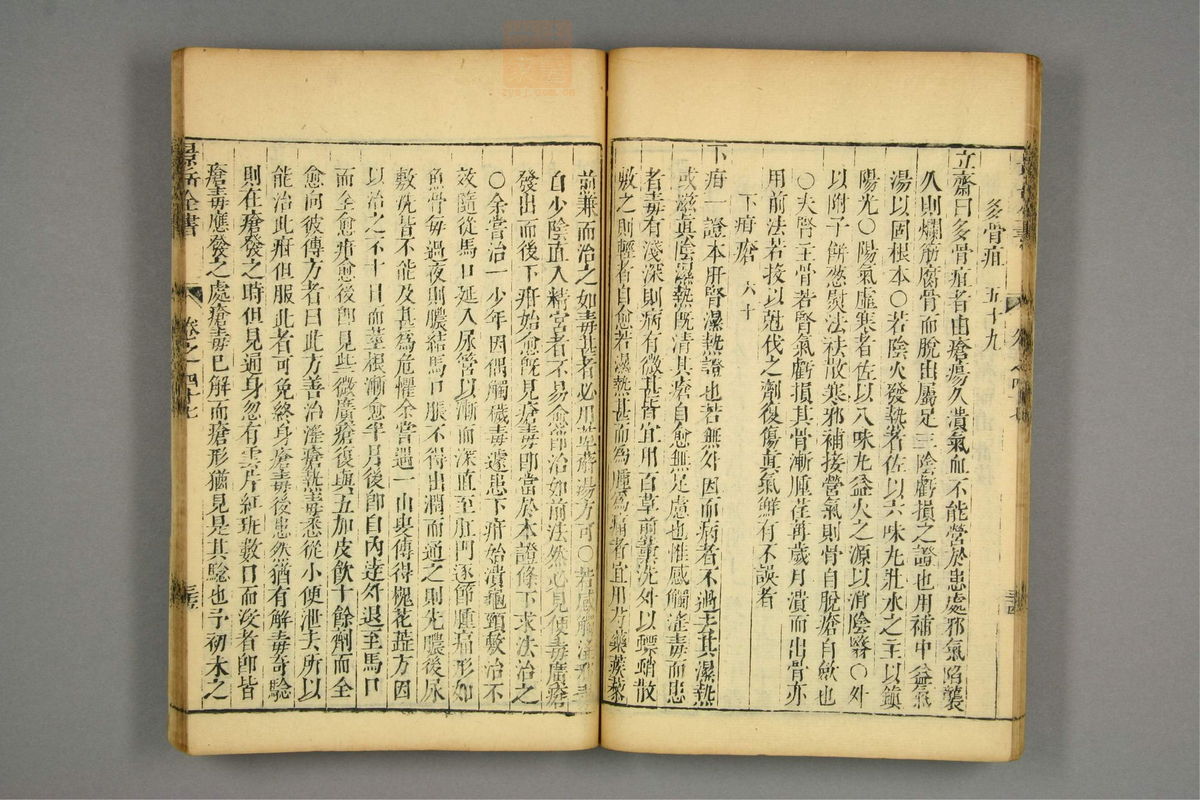 多骨疽 五十九
立齋曰多骨疽者由瘡瘍久潰氣血不能營於患處邪氣陷襲
久則爛筋腐骨而脫出屬足三陰虧損之證也用補中益氣
湯以固根本○若陰火發熱者佐以六味丸壯水之主以鎮
陽光○陽氣虛寒者佐以八味丸益火之源以消陰翳○外
以附子餅葱熨法袪散寒邪補接營氣則骨自脫瘡自歛也
○夫腎主骨若腎氣虧損其骨漸腫荏苒歲月潰而出骨亦
用前法若投以尅伐之劑復傷眞氣鮮有不誤者
下疳瘡 六十
下疳一證本肝腎濕熱證也若無外因而病者不過去其濕熱
或滋眞陰濕熱既清其瘡自愈無足慮也惟感觸淫毒而患
者毒有淺深則病有微甚皆宜用百草煎薰洗外以螵蛸散
敷之則輕者自愈若濕熱甚而為腫為痛者宜用芍藥蒺藜
煎兼而治之如毒甚者必用萆薢湯方可○若感觸淫邪毒
自少陰直入精宮者不易愈卽治如前法然必見便毒廣瘡
發出而後下疳始愈旣見瘡毒卽當於本證條下求法治之
○余嘗治一少年因偶觸穢毒遽患下疳始潰龜頸敷治不
效隨從馬口延入尿管以漸而深直至肛門逐節腫痛形如
魚骨每過夜則膿結馬口脹不得出潤而通之則先膿後尿
敷洗皆不能及甚為危懼余嘗遇一山叟傳得槐花蕋方因
以治之不十日而莖根漸愈半月後卽自內達外退至馬口
而全愈疳愈後卽見些微廣瘡復與五加皮飲十餘劑而全
愈向彼傳方者曰此方善治淫瘡熱毒悉從小便泄去所以
能治此疳但服此者可免終身瘡毒後患然猶有解毒奇驗
則在瘡發之時但見通身忽有雲片紅斑數日而沒者卽皆
瘡毒應發之處瘡毒已解而瘡形猶見是其驗也予初未之
景岳全書
卷之四十七